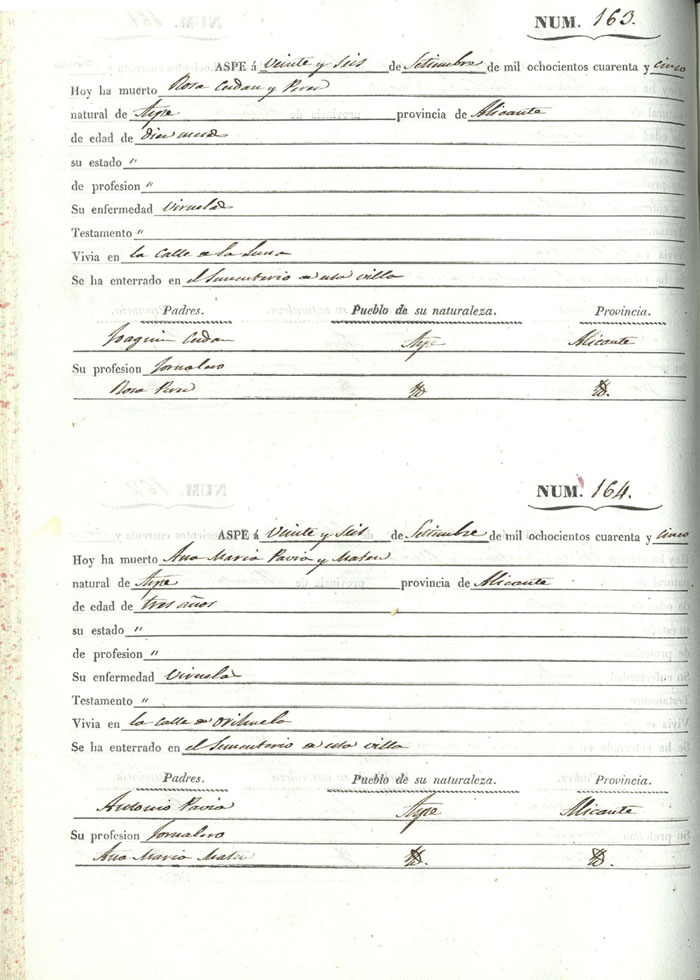 NUM. 163.
ASPE á Veinte y Seis de Setiembre de mil ochocientos cuarenta y cinco
Hoy ha muerto Rosa y
natural de Aspe provincia de Alicante
de edad de diez meses
su estado "
de profesion "
Su enfermedad Viruelas
Testamento "
Vivia en la Calle de la Luna
Se ha enterrado en el Sementerio de esta villa
Padres. Pueblo de su naturaleza. Provincia.
Joaquin Aspe Alicante
Su profesion Jornalero
Rosa
NUM. 164.
ASPE á Veinte y Seis de Setiembre de mil ochocientos cuarenta y cinco
Hoy ha muerto Ana Maria Pavia y Mateu
natural de Aspe provincia de Alicante
de edad de tres años
su estado "
de profesion "
Su enfermedad Viruelas
Testamento "
Vivia en la Calle de Orihuela
Se ha enterrado en el Sementerio de esta villa
Padres. Pueblo de su naturaleza. Provincia.
Antonio Pavia Aspe Alicante
Su profesion Jornalero
Ana Maria Mateu